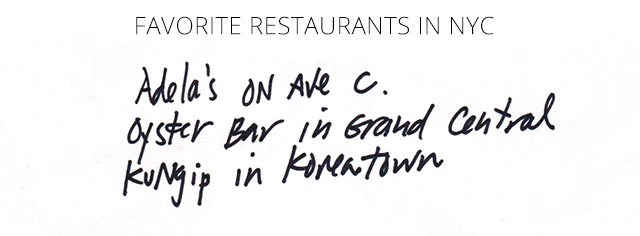 FAVORITE RESTAURANTS IN NYC
Adela's ON Ave C.
Oyster Bar in Grand Central
KuNgip in Koreatown